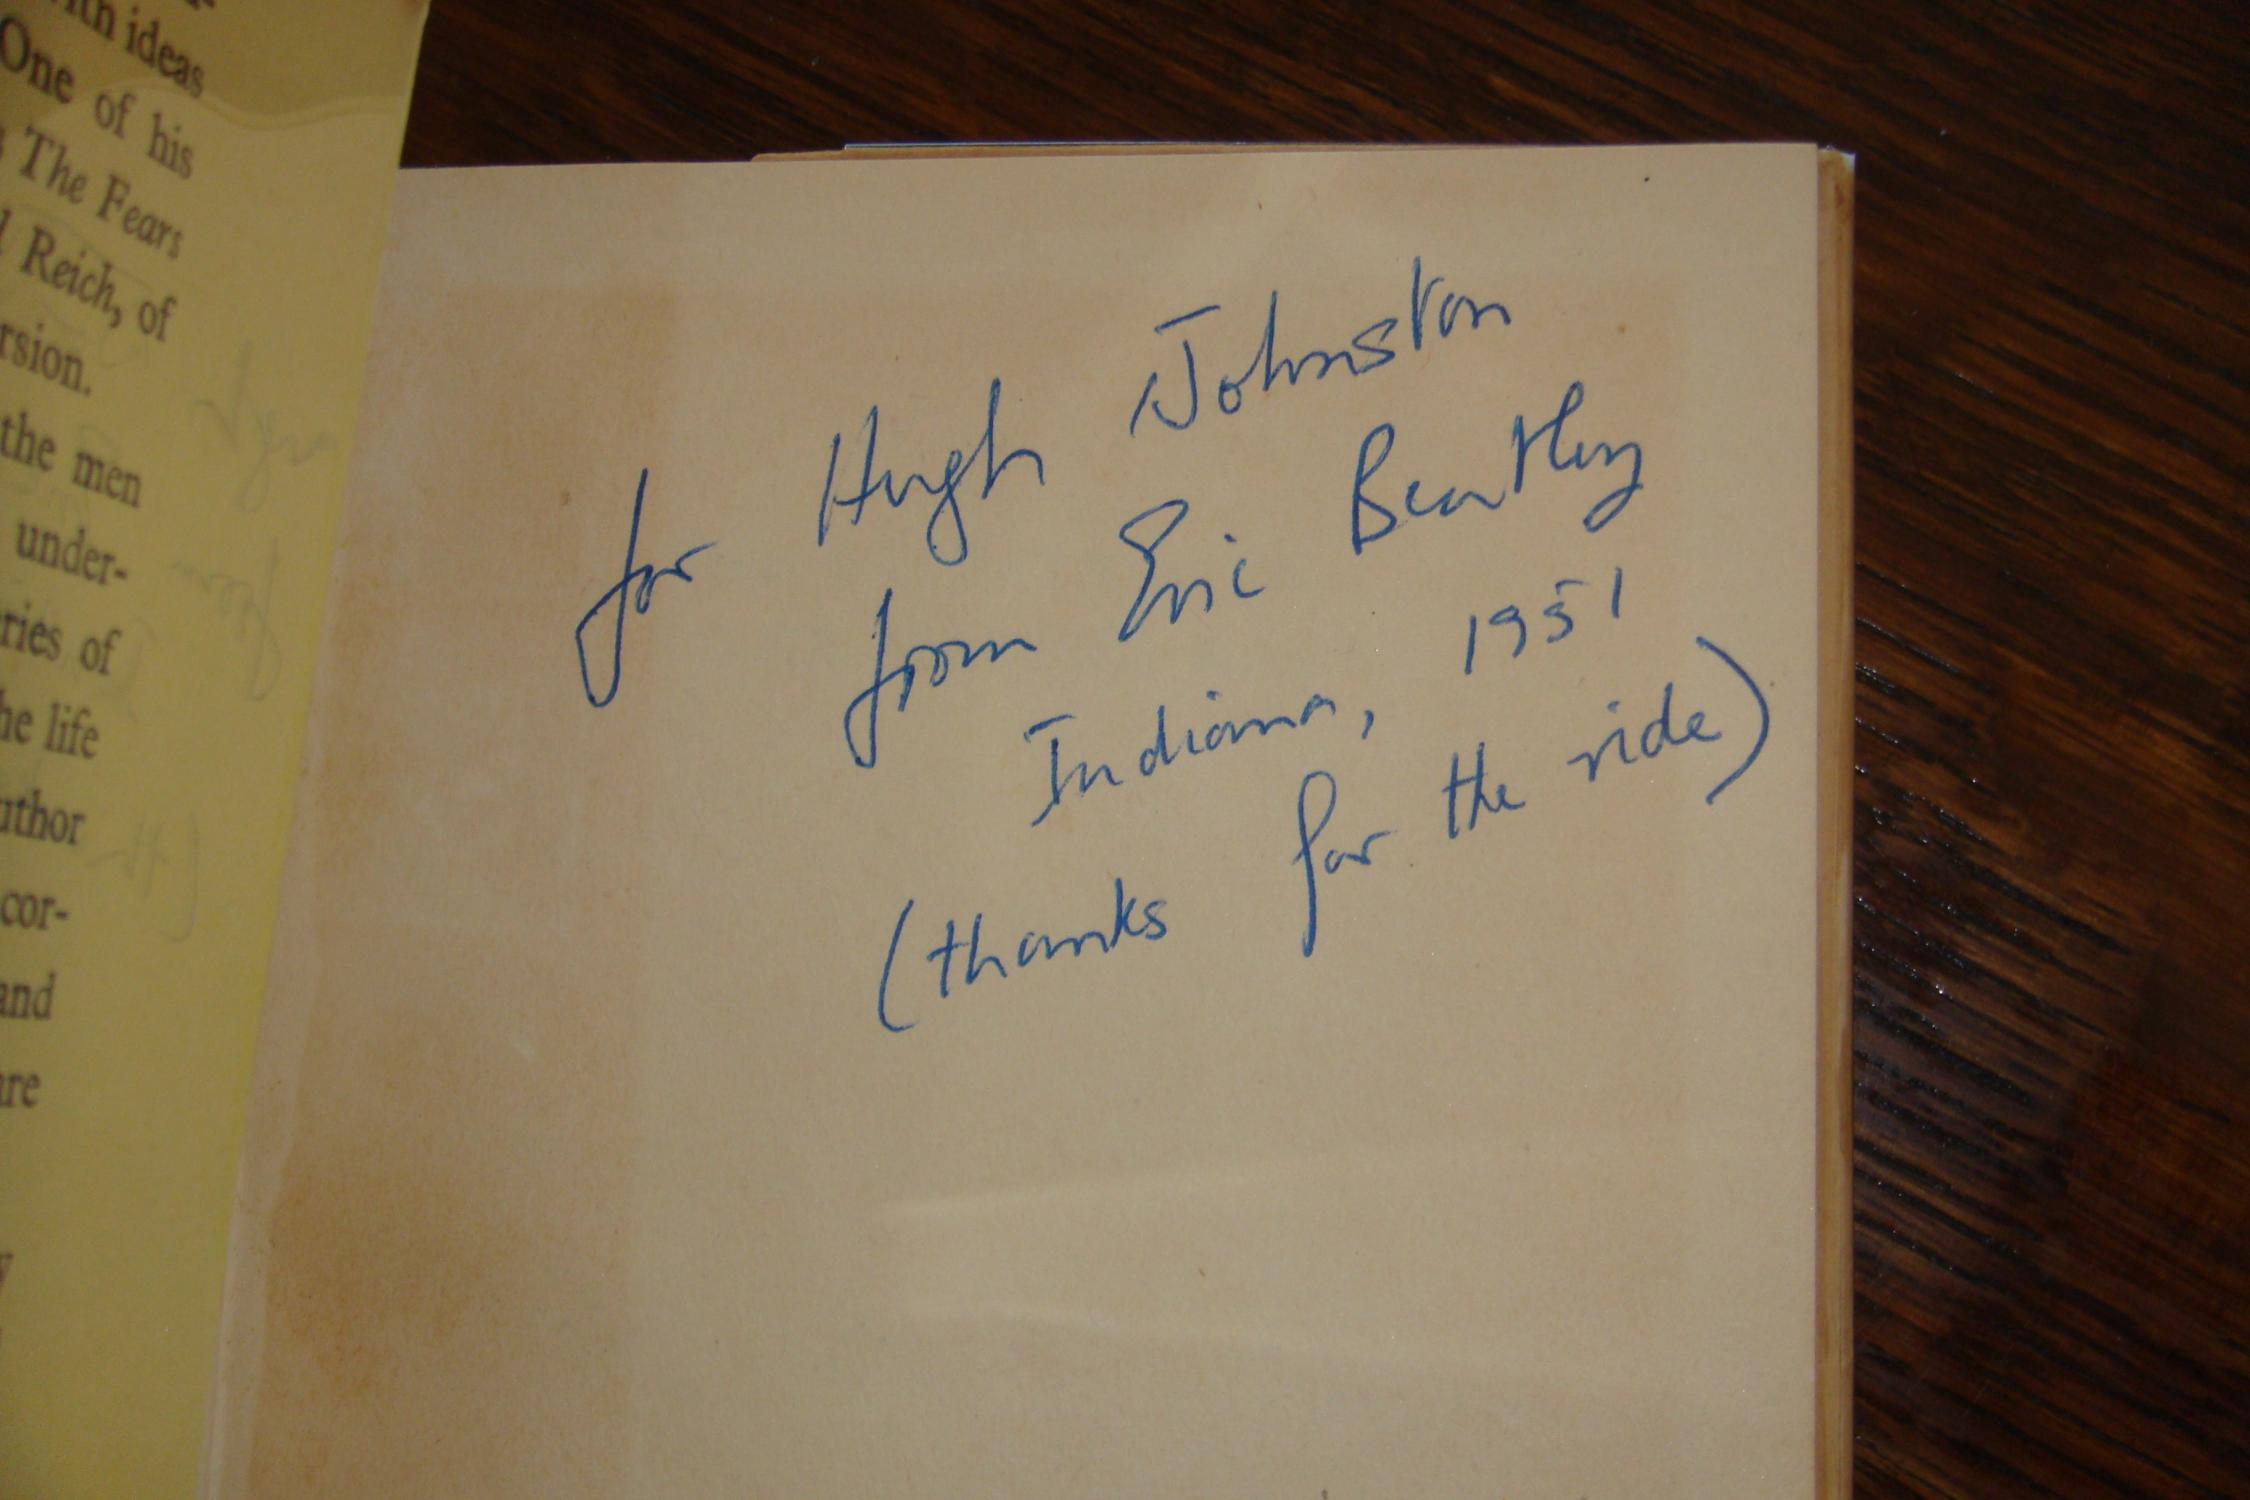 with ideas
One of his
The Fears
Reich, of
rsion.
the men
under-
ries of
he life
uthor
cor-
and
are
for Hugh Johnston
from Eric Bentley
Indiana, 1951
(thanks for the ride)